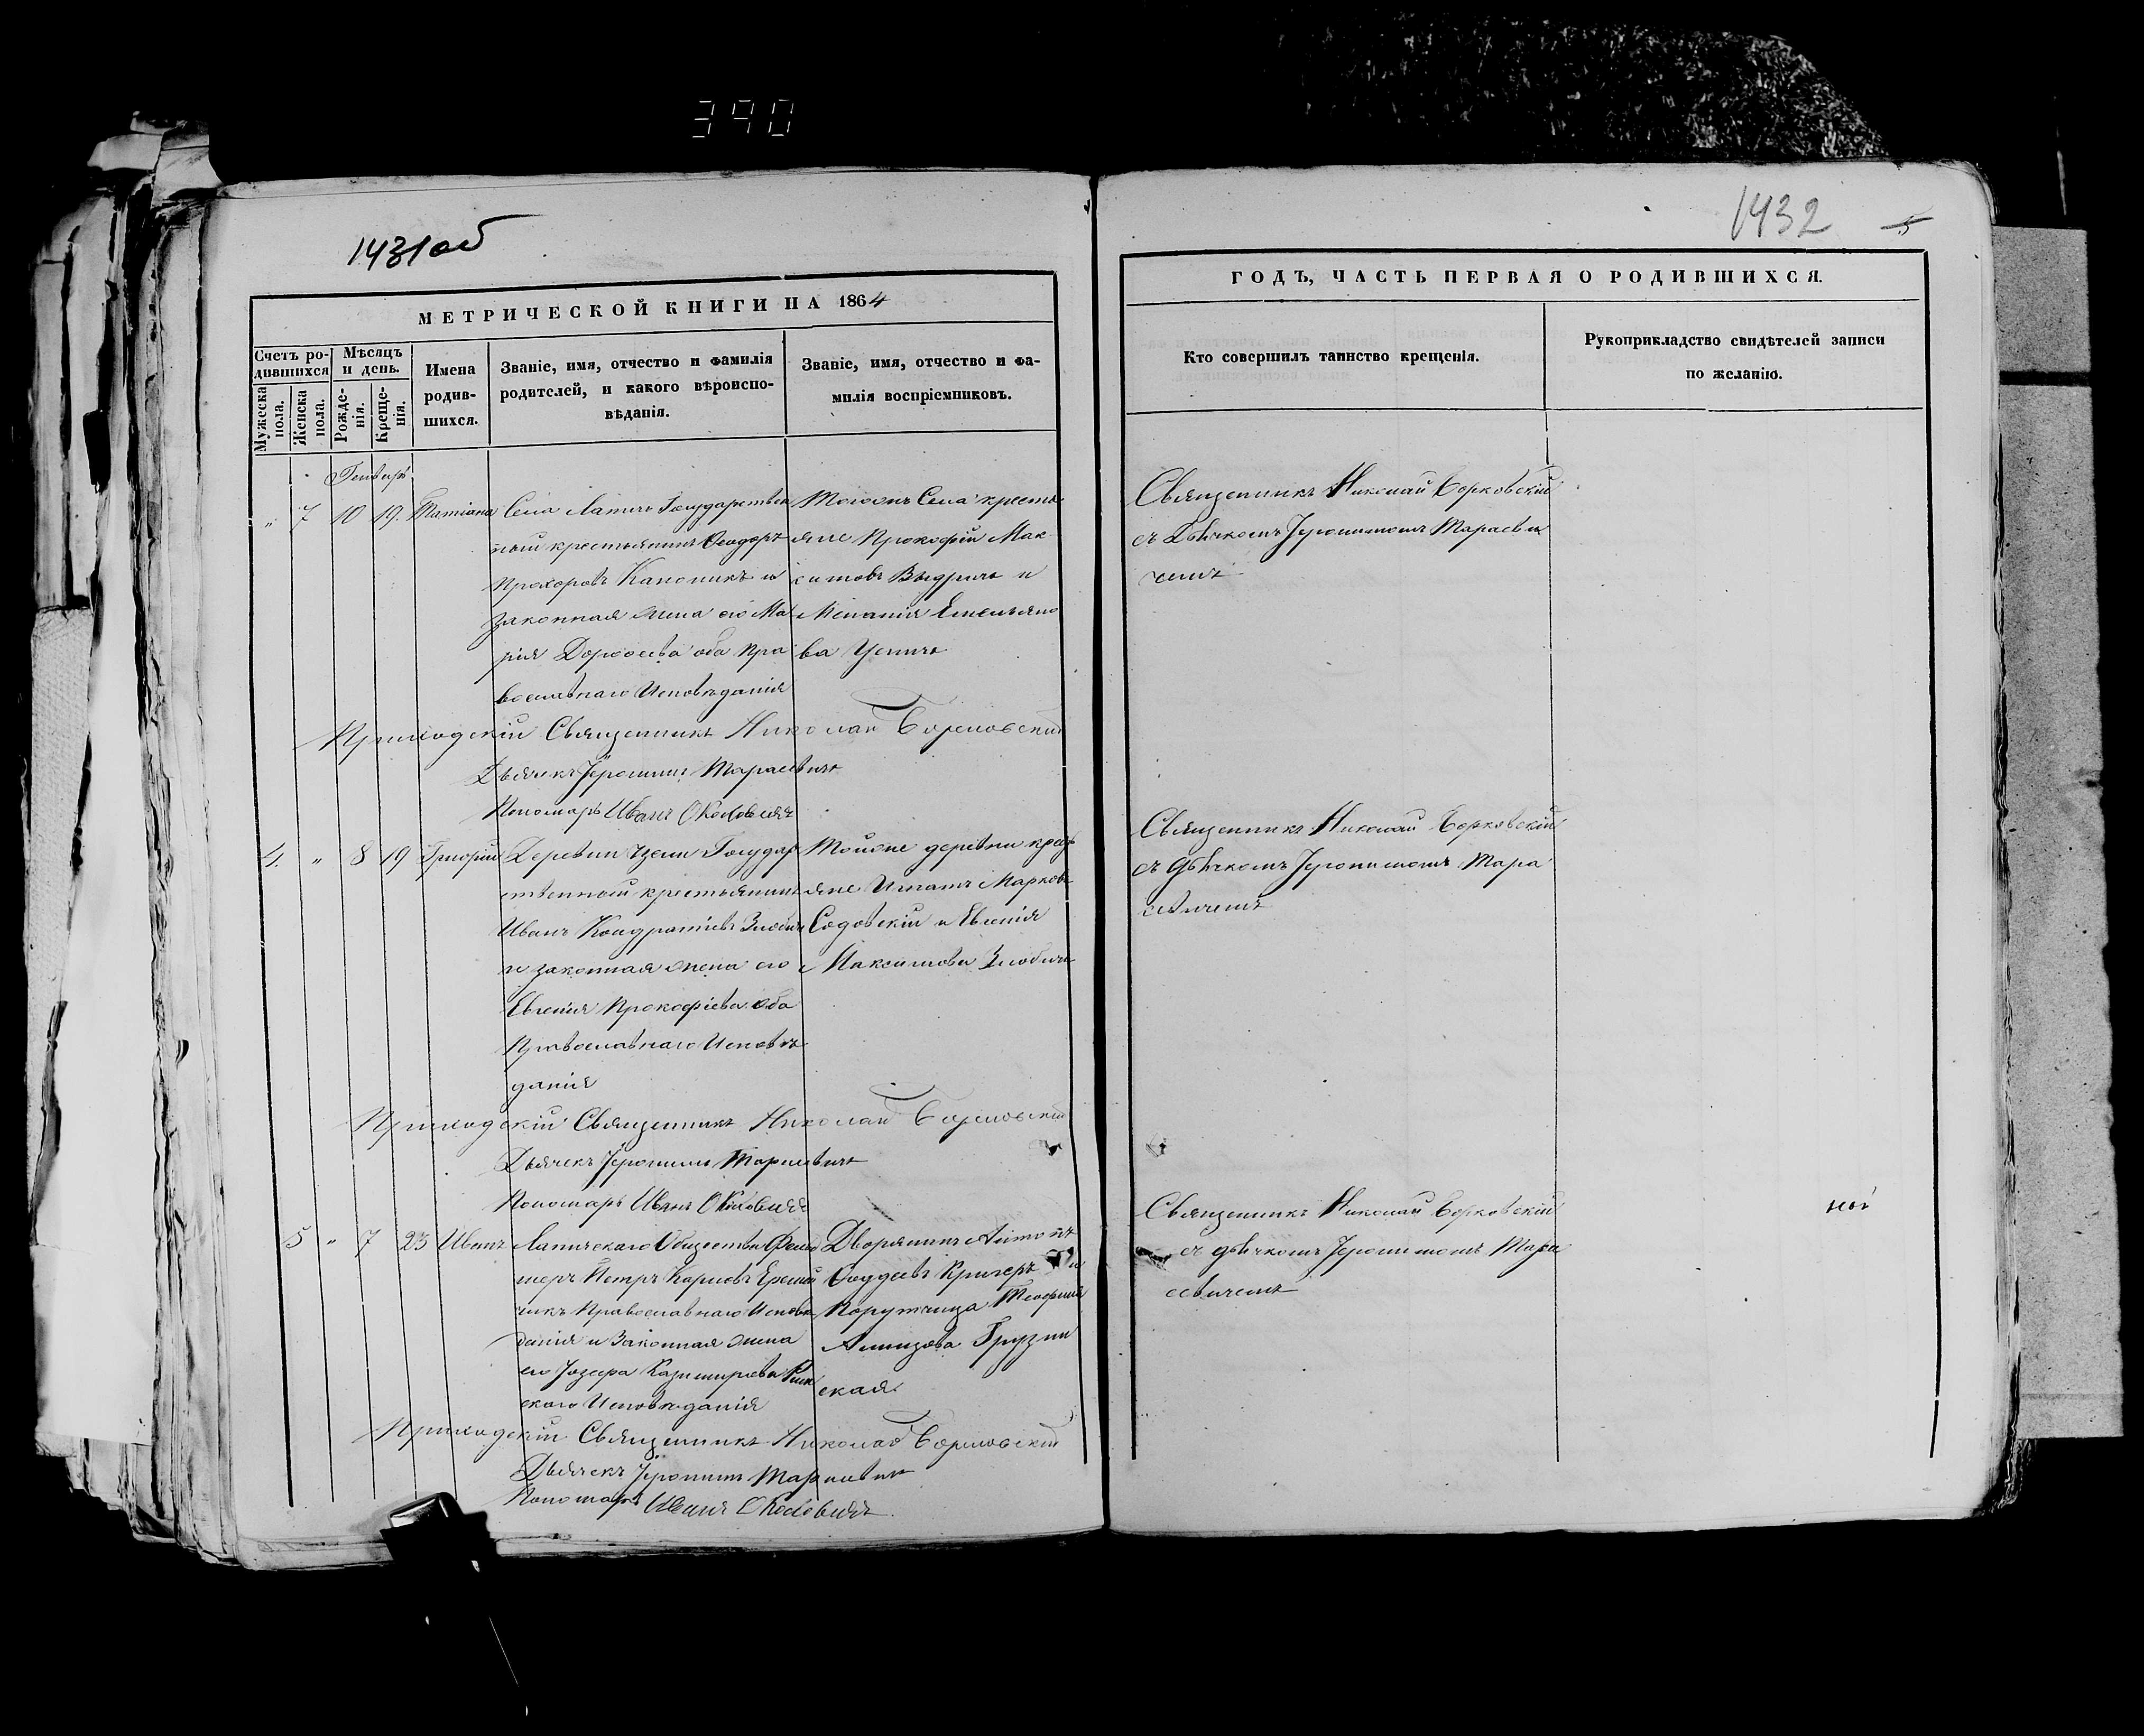 390
1431об
МЕТРИЧЕСКОЙ КНИГИ НА 1864
Счетъ ро-
дившихся
Мѣсяцъ
и день.
Мужеска
пола.
Женска
пола.
Рожде-
нія.
Креще-
нія.
Имена
родив-
шихся.
Званіе, имя, отчество и фамилія
родителей, и какого вѣроиспо-
вѣданія.
Званіе, имя, отчество и фа-
милія воспріемниковъ.
Генварь
" 7 10 19. Татіана
Села Лапичъ Государствен
ный крестьянинъ Ѳеодоръ
Прохоровъ Каноникъ и
законная жена его Ма
рія Дороѳеева оба Пра
вославнаго Исповѣданія
Тогожъ Села кресть
яне Прокофій Мак-
симовъ Выдричъ и
Меланія Емельяно
ва
Приходскій Священникъ Николай Борковскій
Дьячекъ Іеронимъ Тарасевичъ
Пономарь Иванъ Околовичъ
4. " 8 19 Григорій
Деревни Государ
ственный крестьянинъ
Иванъ Кондратіевъ Злобичъ
и законная жена его
Евгенія Прокофіева оба
Православнаго Исповѣ
данія
Тойже деревни крест
яне Игнатъ Марковъ
Садовскій и Евгенія
Максимова Злобичъ
Приходскій Священникъ Николай Борковскій
Дьячекъ Іеронимъ Тарасевичъ
Пономарь Иванъ Околовичъ
5 " 7 23 Иванъ
Лапичскаго Общества Фельд
шеръ Петръ Карповъ
Православнаго Исповѣ
данія и Законная жена
его Іозефа Казимирова Рим
скаго Исповѣданія
Дворянинъ Антонъ
Ѳаддеевъ Кригеръ и
Поручица Теофилія
Грузин
ская
Приходскій Священникъ Николай Борковскій
Дьячекъ Іеронимъ Тарасевичъ
Пономарь Иванъ Околовичъ
1432
5
ГОДЪ, ЧАСТЬ ПЕРВАЯ О РОДИВШИХСЯ.
Кто совершилъ таинство крещенія.
Рукоприкладство свидѣтелей записи
по желанію.
Священникъ Николай Борковскій
съ Дьячкомъ Іеронимомъ Тарасеви
чемъ
Священникъ Николай Борковскій
съ дьячкомъ Іеронимомъ Тара
севичемъ
Священникъ Николай Борковскій
съ дьячкомъ Іеронимомъ Тара
севичемъ